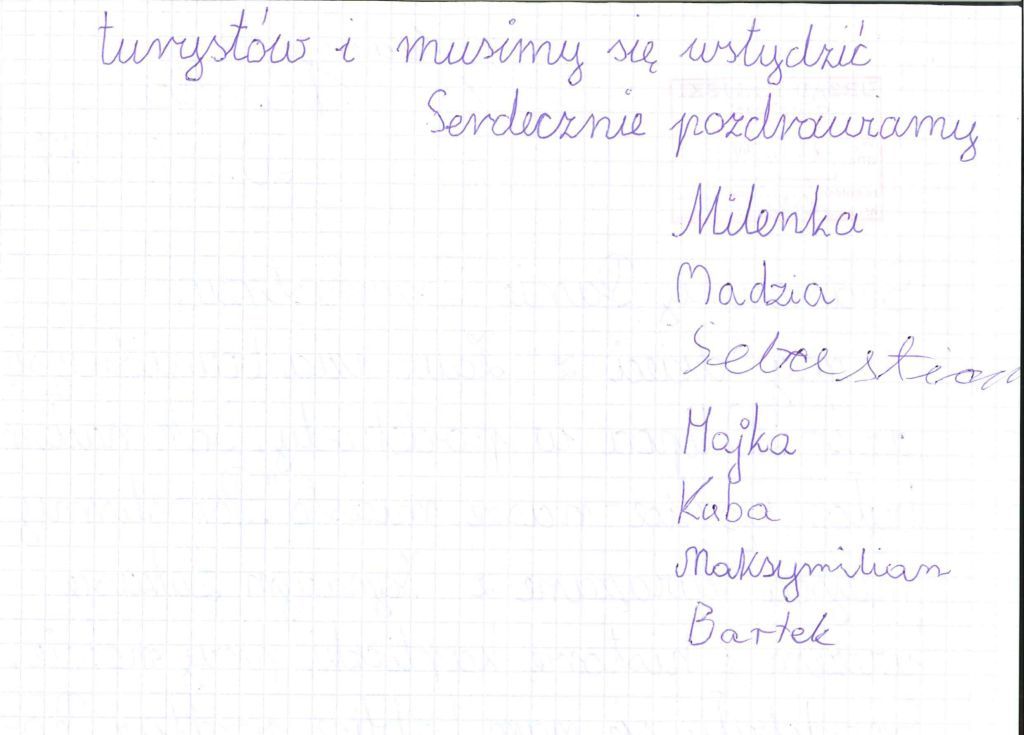 turystów i musimy się wstydzić
Serdecznie pozdrawiamy
Milenka
Madzia
Sebastian
Majka
Kuba
Maksymilian
Bartek